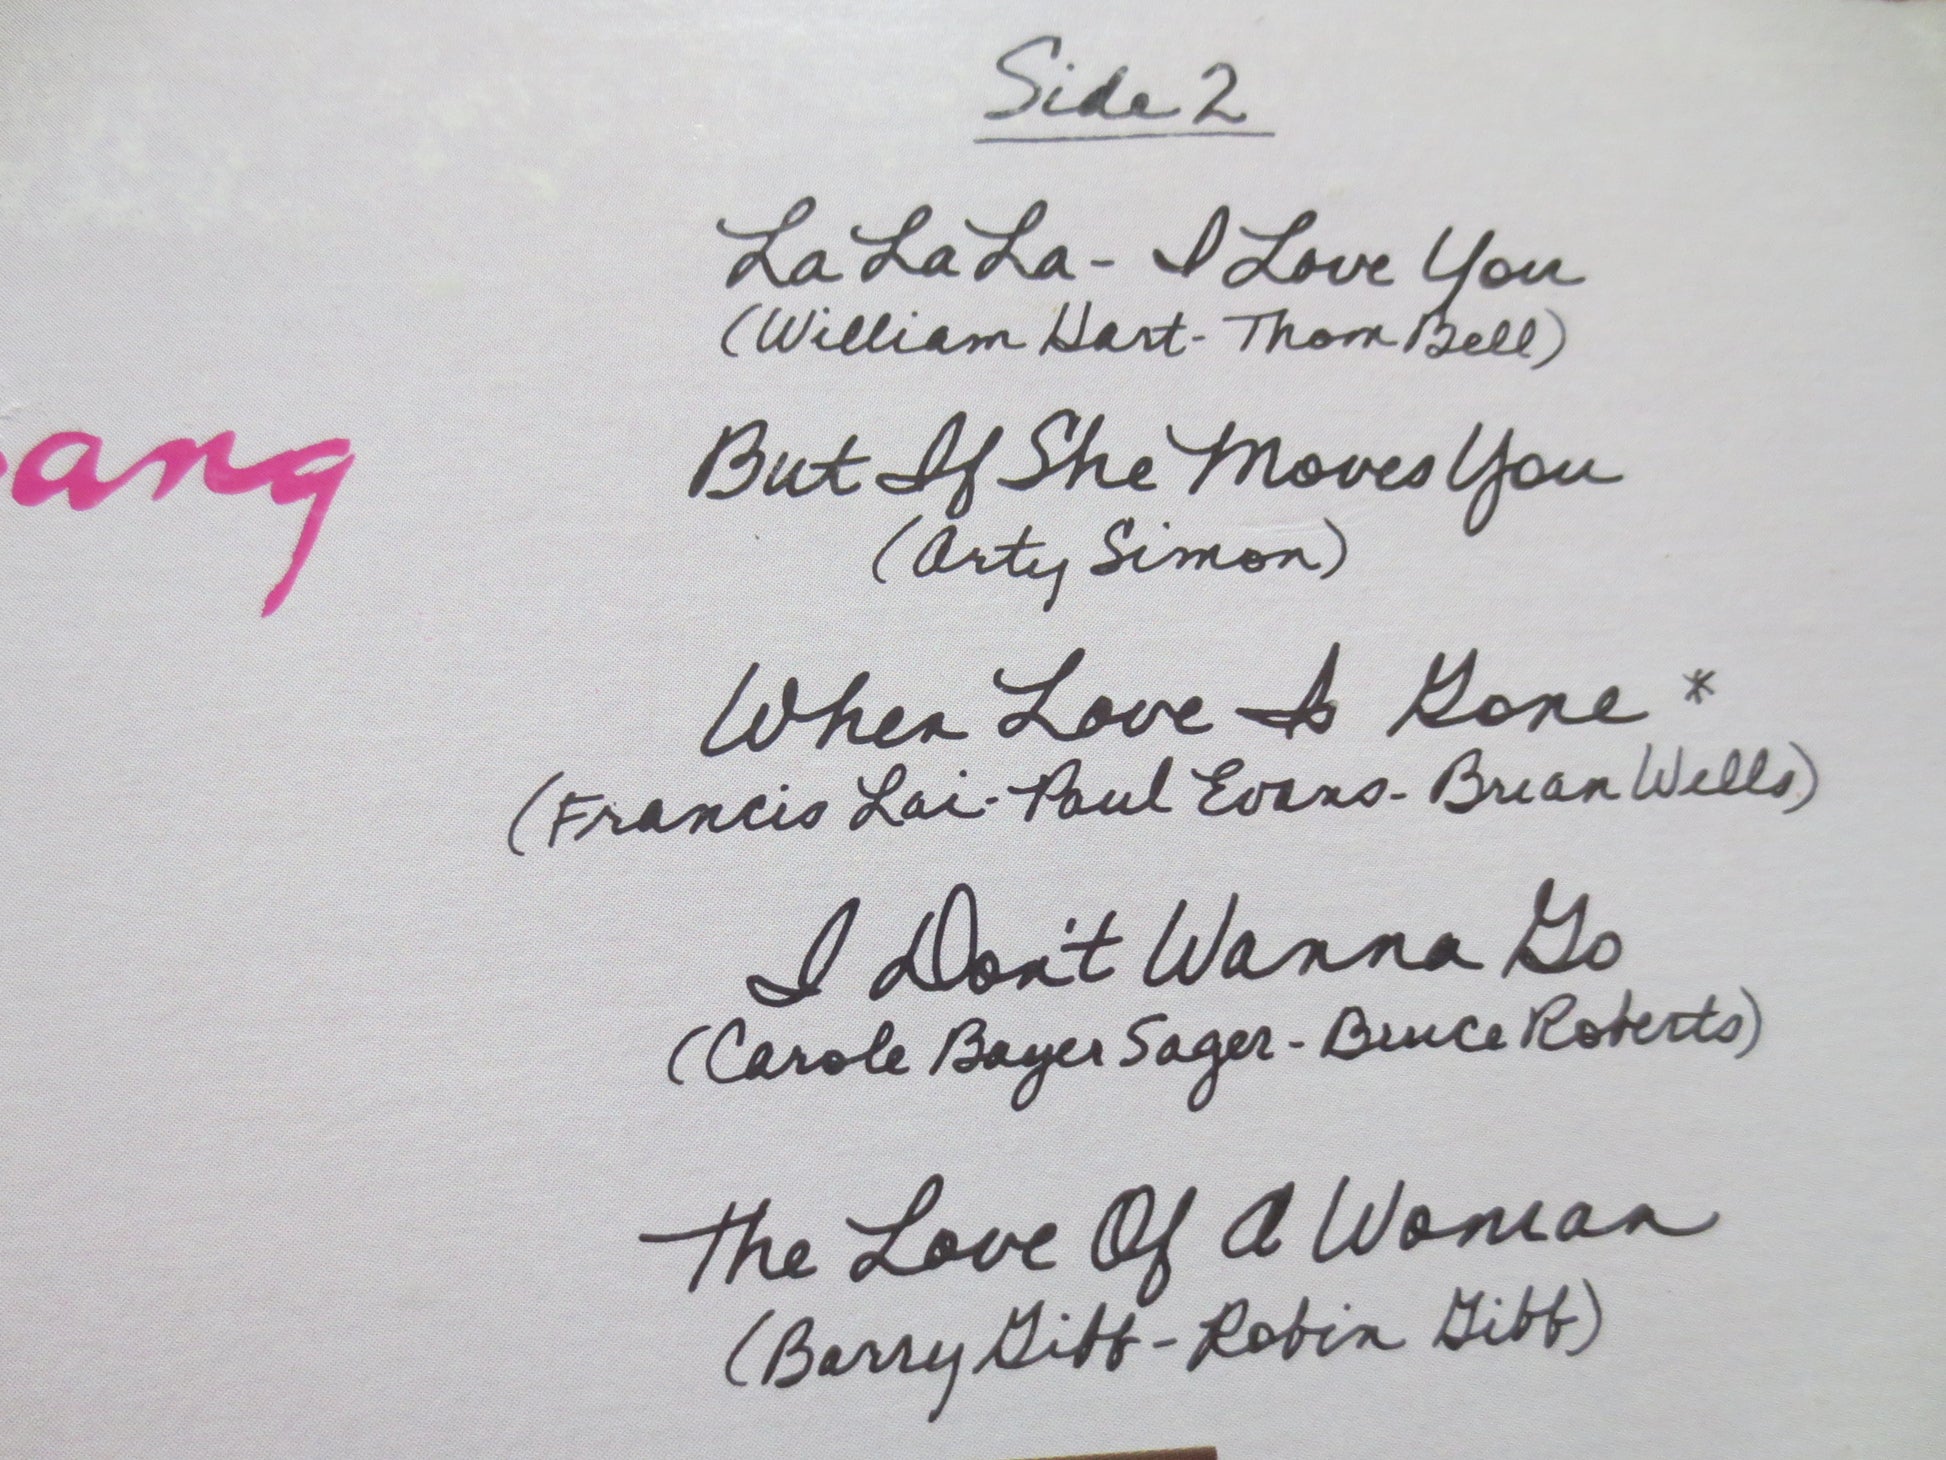 Side 2
La La La - I Love You
(William Hart - Thom Bell)
ang
But If She Moves You
(Arty Simon)
When Love Is Gone *
(Francis Lai - Paul Evans - Brian Wells)
I Don't Wanna Go
(Carole Bayer Sager - Bruce Roberts)
The Love Of A Woman
(Barry Gibb - Robin Gibb)